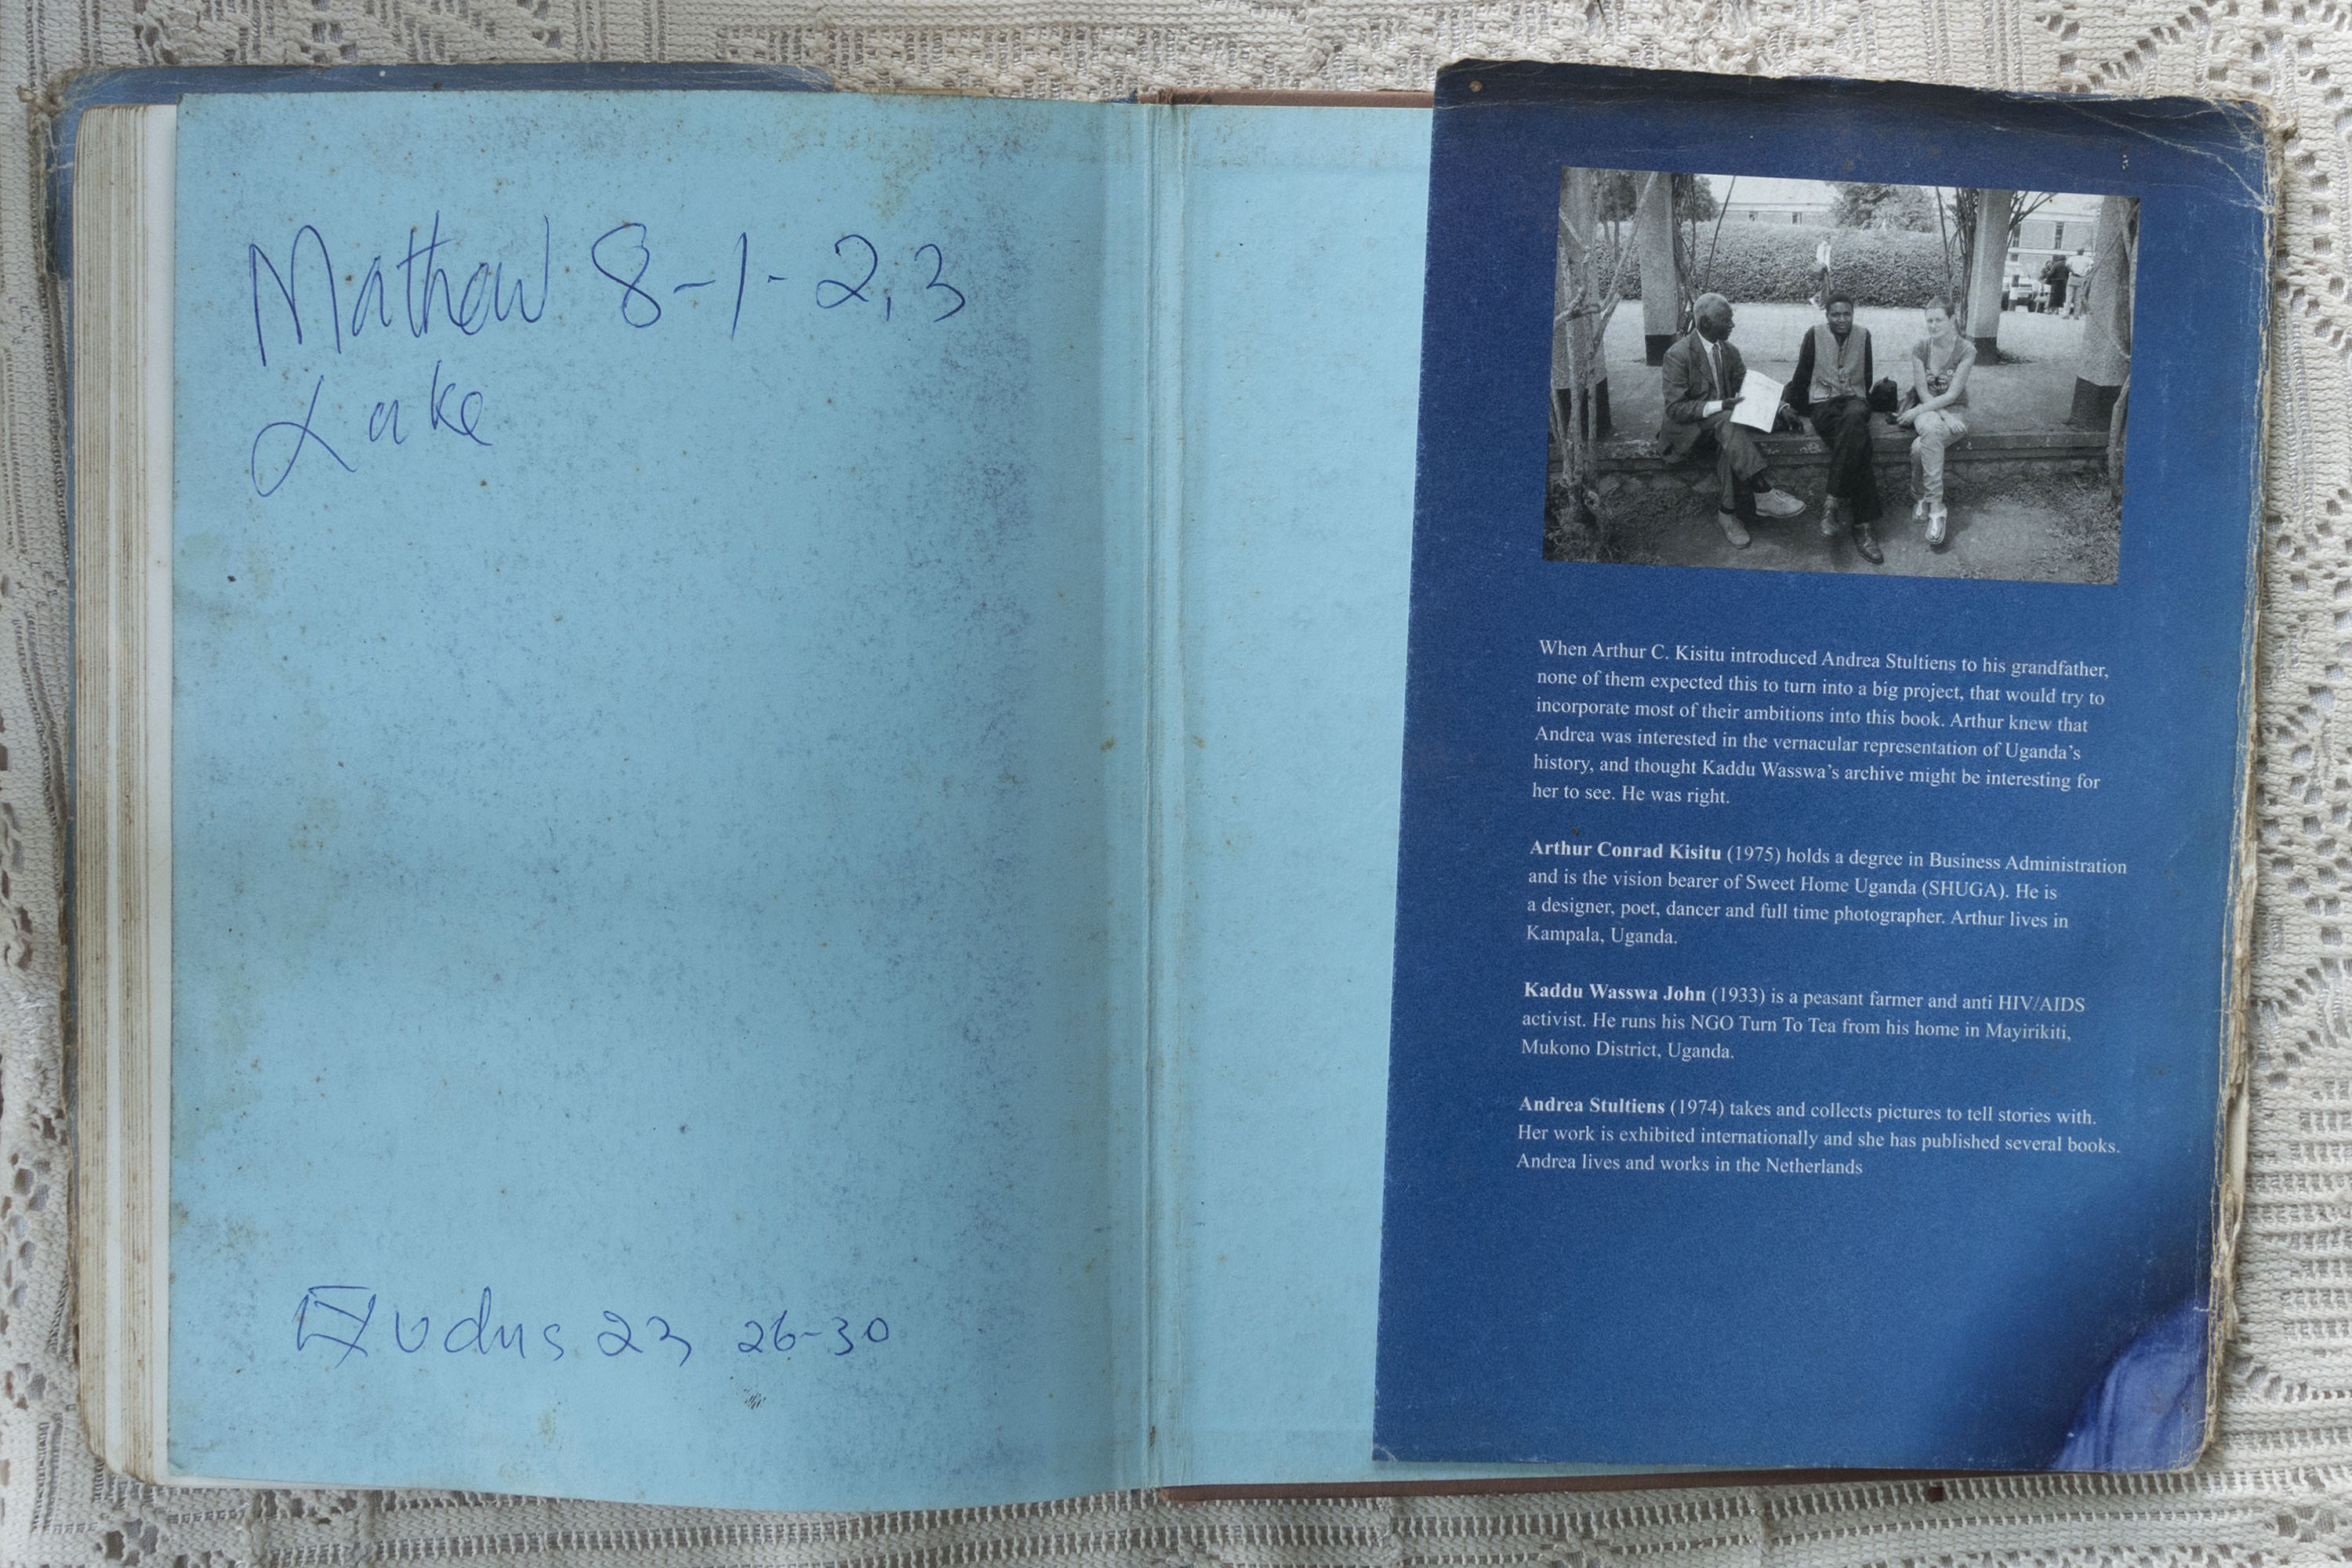 Mathew 8-1-2,3
Luke
Exodus 23 26-30
When Arthur C. Kisitu introduced Andrea Stultiens to his grandfather,
none of them expected this to turn into a big project, that would try to
incorporate most of their ambitions into this book. Arthur knew that
Andrea was interested in the vernacular representation of Uganda's
history, and thought Kaddu Wasswa's archive might be interesting for
her to see. He was right.
Arthur Conrad Kisitu (1975) holds a degree in Business Administration
and is the vision bearer of Sweet Home Uganda (SHUGA). He is
a designer, poet, dancer and full time photographer. Arthur lives in
Kampala, Uganda.
Kaddu Wasswa John (1933) is a peasant farmer and anti HIV/AIDS
activist. He runs his NGO Turn To Tea from his home in Mayirikiti,
Mukono District, Uganda.
Andrea Stultiens (1974) takes and collects pictures to tell stories with.
Her work is exhibited internationally and she has published several books.
Andrea lives and works in the Netherlands